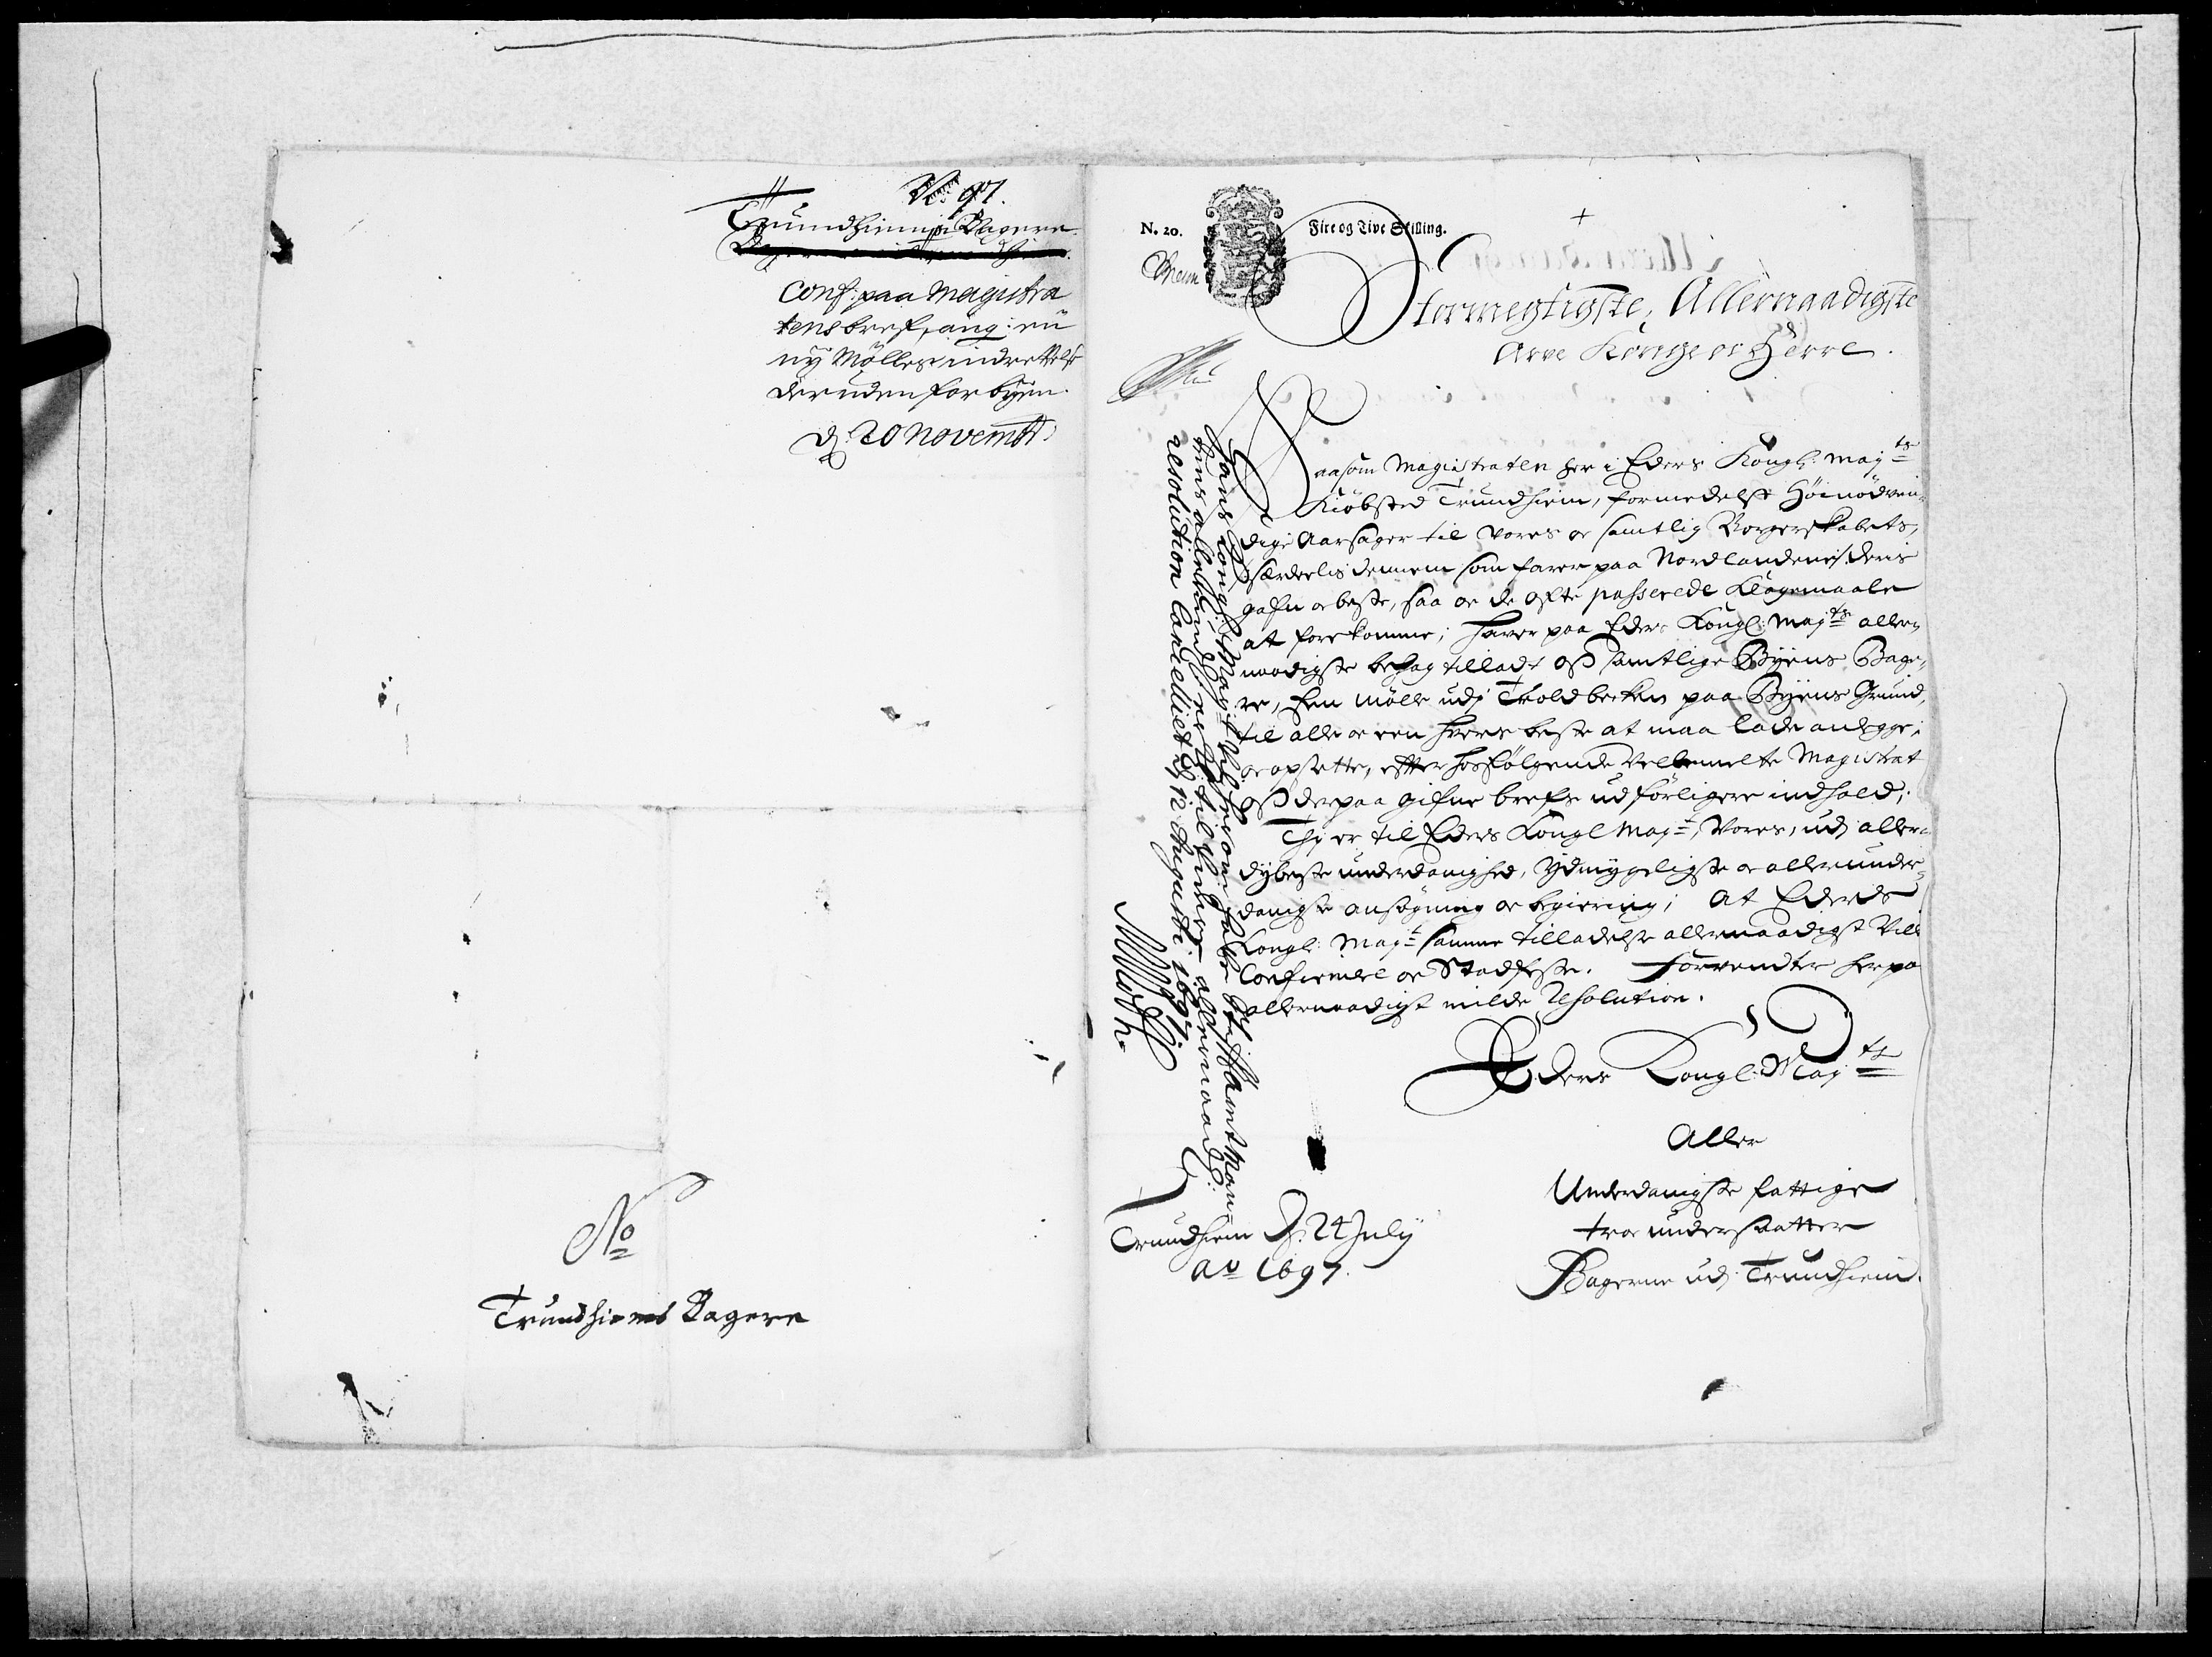 No: 97.
Trundhiembs Bagere
Conf: paa Magistra
tens bref, ang: en
ny Mølles indrettelse
der uden for byen.
d. 20 Novembr:
No
Trundhiembs Bagere
N. 20.
Fire og Tive Skilling.
Stormegtigste, Allernaadigste
Arve Konge oc Herre.
Saasom Magistraten her i Eders Kongl: Mayts
Kiøbsted Trundhiem, formedelst Høinødven-
dige Aarsager til vores oc samtlig Borgerskabets,
særdeelis dennem som farer paa Nordlandene, deris
gafn oc beste, saa oc de ofte passerede Klagemaale
at forekomme; Hafver paa Eders Kongl: Mayts aller-
naadigste behag tilladt oss samtlige Byens Bage-
re, En Mølle udj Troldbecken paa Byens Grund,
til alle oc een hvers beste at maa lade anlegge,
oc opsette, effter hosfølgende Velbemelte Magistrat
oss derpaa gifne brefs udførligere indhold;
Thj er til Eders Kongl Mayt, Vores, udj aller-
dybeste underdanighed, Ydmygeligste oc allerunder-
danigste ansøgning oc begiering; At Eders
Kongl: Mayt samme tilladelse allernaadigst Vill
Confirmere oc Stadfeste. Forventer herpa
allernaadigst milde Resolution.
Eders Kongl: Mayts
Aller
Underdanigste fattige
troe undersaatter
Bagerne udj Trundhiem.
Trundhiem d: 24 July
Ao 1697.
Hans Kongl: Mayt vil herom hafve Stiftamtmand
tens allerunderd: til
resolution Cancelliet d: 12 Augusti 1697.
MMoth.